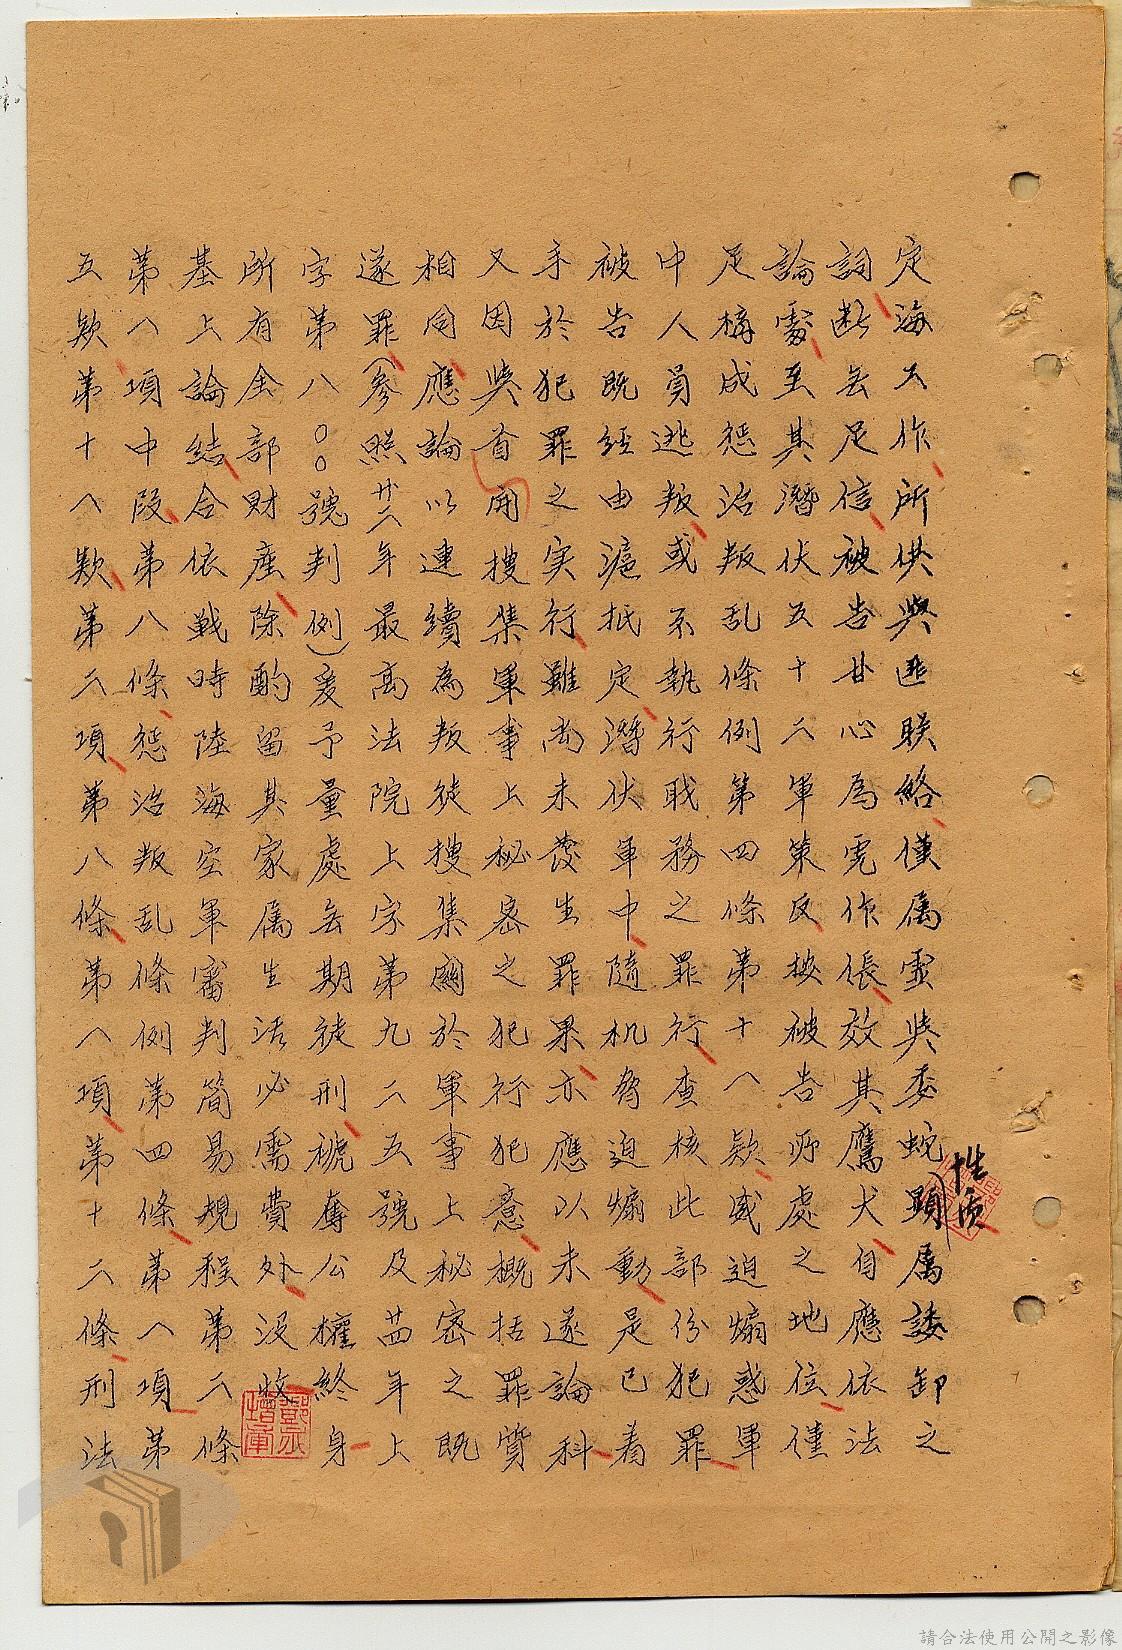 定海工作所供與匪联絡僅属虛與委蛇顯属諉卸之
性质
詞断無足信被告甘心為虎作倀效其鷹犬自應依法
論處至其潛伏五十二軍策反按被告所處之地位僅
足構成惩治叛乱條例第四條第十八款威迫煽惑軍
中人員逃叛或不執行職務之罪行查核此部份犯罪
被告既経由滬抵定潛伏軍中隨机脅迫煽動是已着
手於犯罪之实行雖尚未發生罪果亦應以未遂論科
又因與首開搜集軍事上秘密之犯行犯意概括罪質
相同應論以連續為叛徒搜集關於軍事上秘密之既
遂罪(參照廿二年最高法院上字第九二五號及廿四年上
字第八〇〇號判例)爰予量處無期徒刑褫奪公權終身
所有全部財產除酌留其家属生活必需費外沒收
基上論結合依戰時陸海空軍審判簡易規程第二條
第八項中段第八條惩治叛乱條例第四條第八項第
五款第十八款第二項第八條第八項第十二條刑法
請合法使用公開之影像